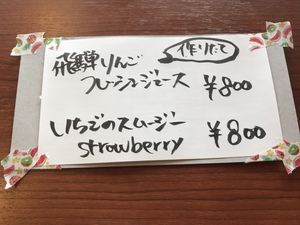 作りたて
飛騨りんご
フレッシュジュース ¥800
いちごのスムージー ¥800
strawberry